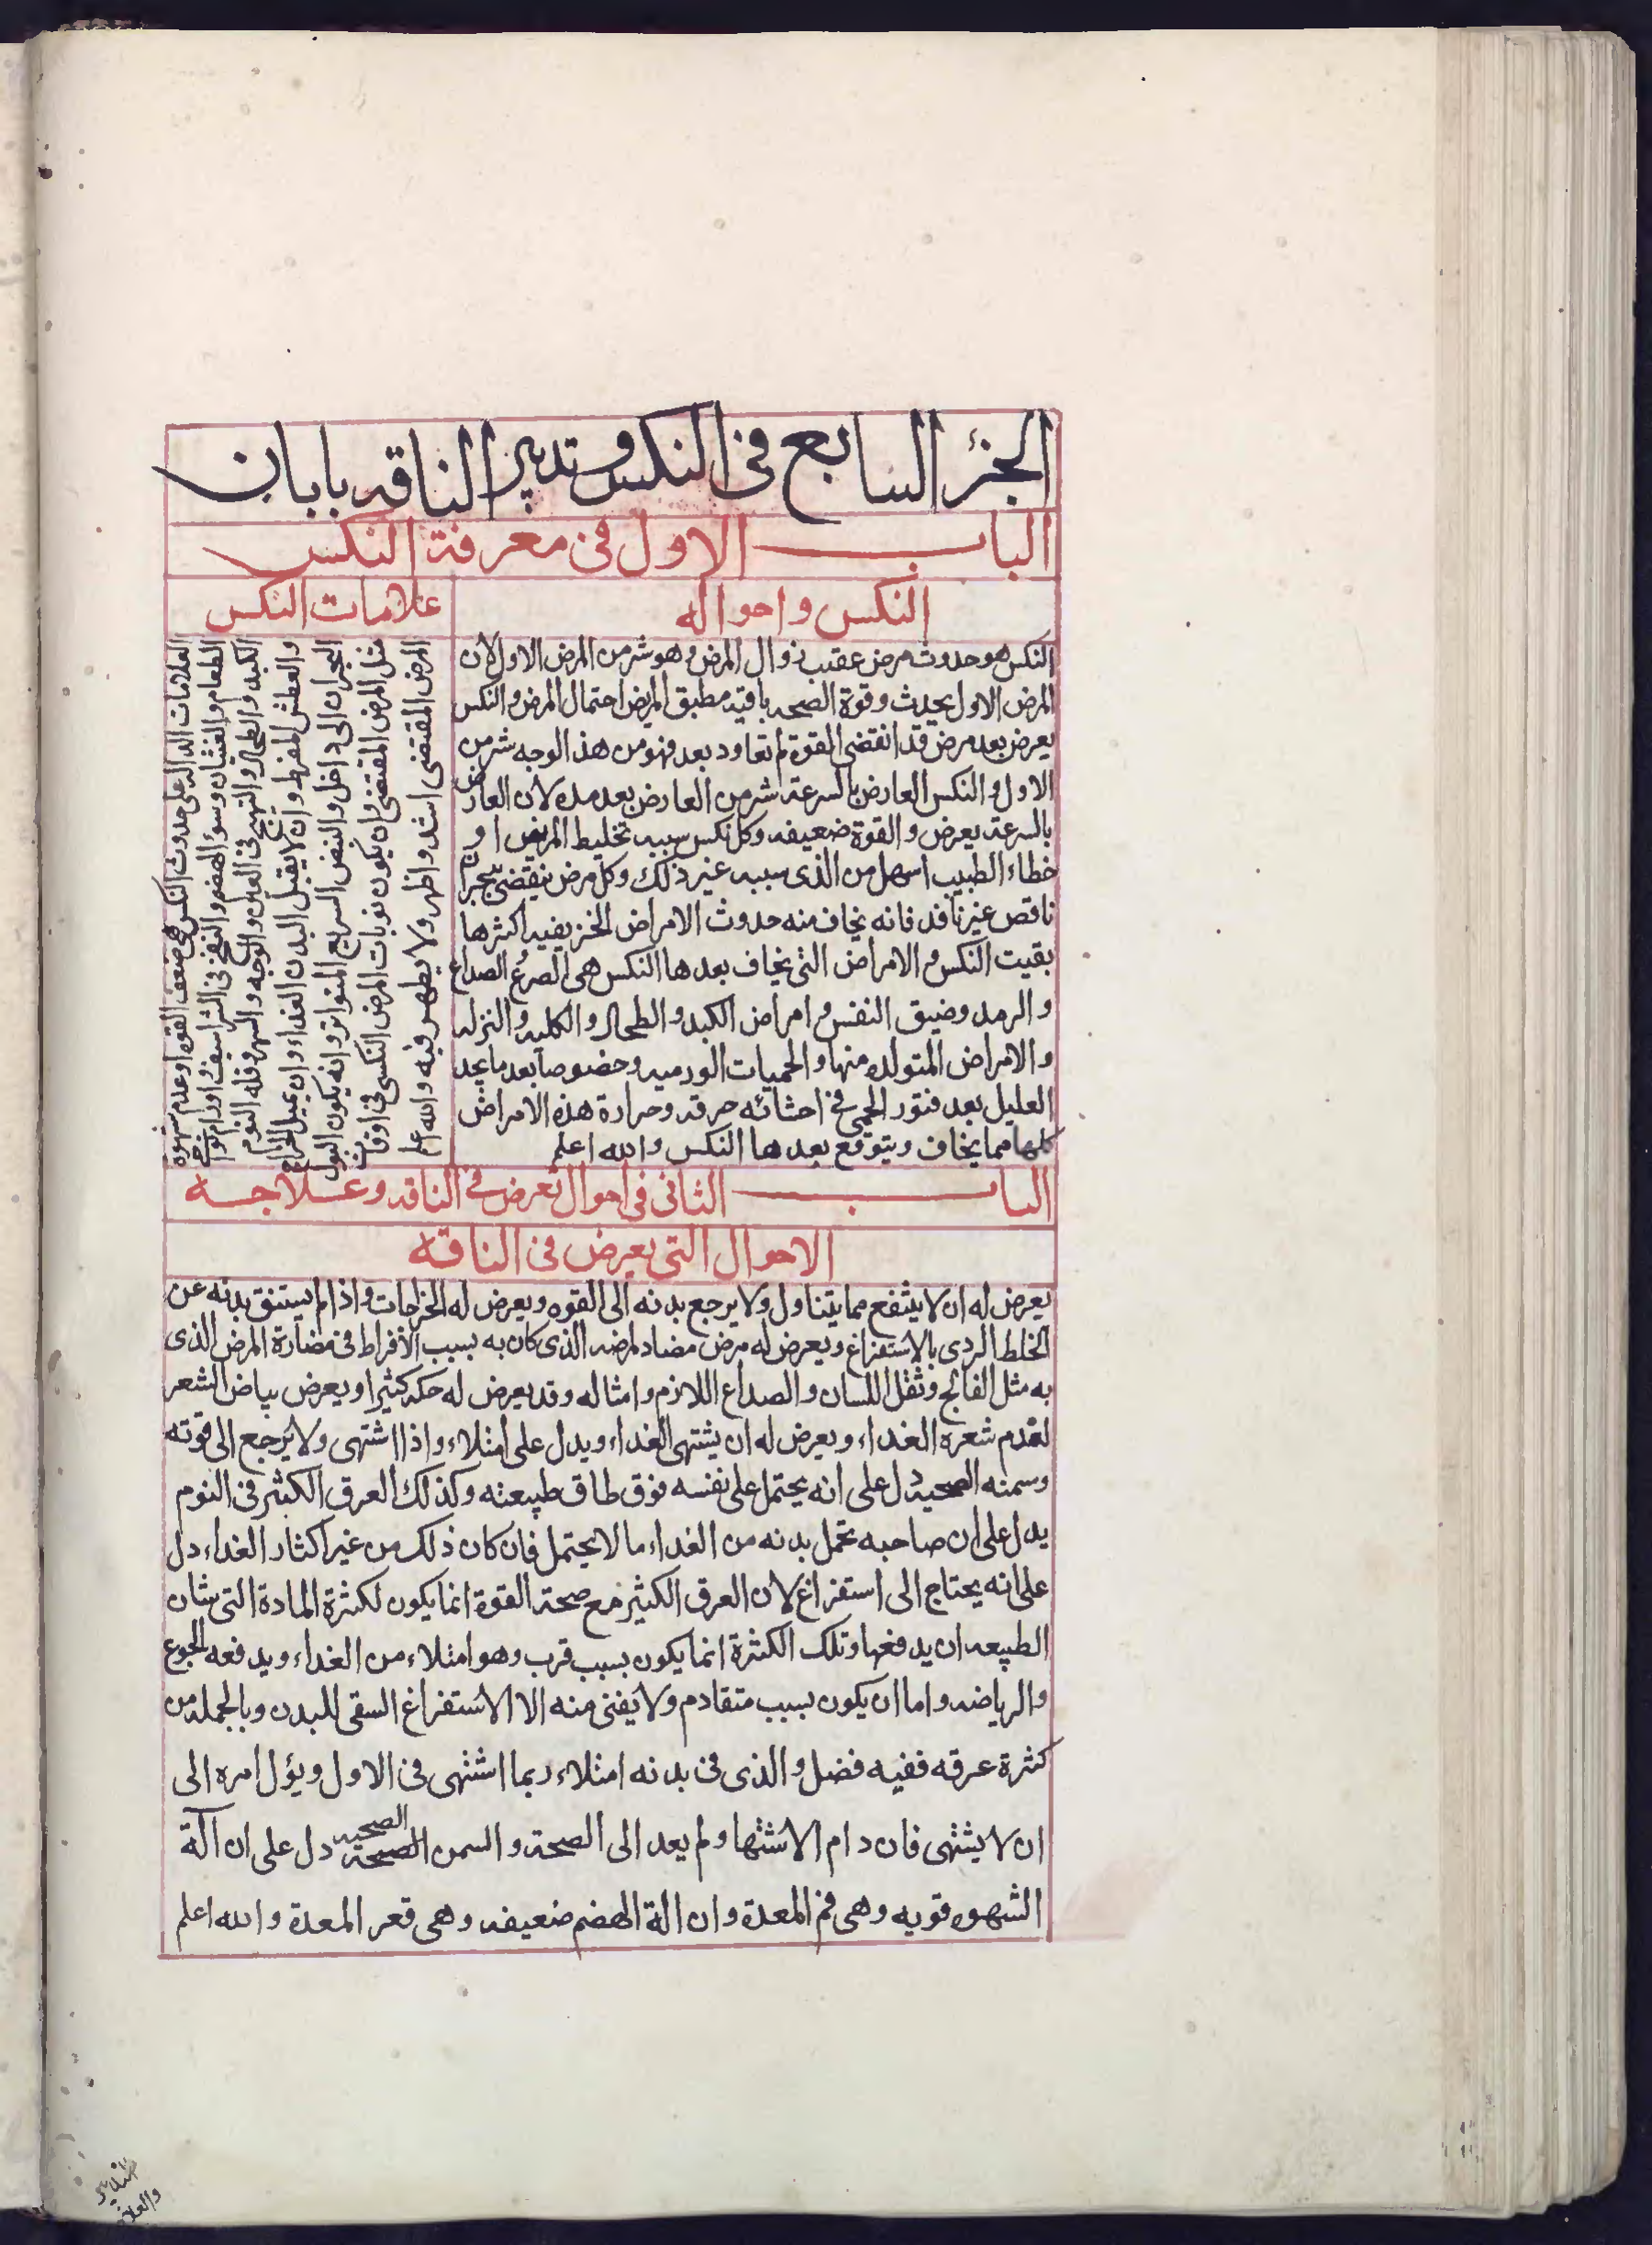 الجزء السابع في النكس وتدبير الناقه بابان
الباب الاول في معرفة النكس
النكس واحواله
النكس هو حدوث مرض عقيب زوال المرض وهو شر من المرض الاول لان
المرض الاول يحدث وقوة الصحه باقيه مطبق المريض احتمال المرض والنكس
يعرض بعد مرض قد انقضى القوة لم تعاود بعد فهو من هذا الوجه شر من
الاول والنكس العارض بالسرعة شر من العارض بعد مده لان العارض
بالسرعه يعرض والقوة ضعيفه وكل نكس سببه تخليط المريض او
خطاء الطبيب اسهل من الذى سببه غير ذلك وكل مرض ينقضي ببحران
ناقص غير نافذ فانه يخاف منه حدوث الامراض اكثرها
بقيت النكس والامراض التى يخاف بعدها النكس هى الصرع الصداع
والرمد وضيق النفس وامراض الكبد والطحال والكليه والنزله
والامراض المتولده منها والحميات الورميه وخصوصا بعد ما يجد
العليل بعد فتور الحمى في احشائه حرقه وحرارة هذه الامراض
كلها مما يخاف ويتوقع بعدها النكس والله اعلم
علامات النكس
العلامات الداله على حدوث النكس هى ضعف القوه او عدم شهوة
الطعام والغثيان وسوء الهضم والنفخ في الشراسيف واورام
الكبد والطحال والتهيج فى العين والوجه والسهر وقله النوم
والعطش المفرط وان لا يقبل البدن الغداء وان يميل
البحران الى داخل والنبض السريع المتواتر وانه يكون البول
مثل المرض المقتضى وان يكون نوبات المرض النكسى في اوقات
المرض المقتضى اشد واظهر ولا يظهر فيه والله اعلم
الباب الثانى فى احوال تعرض في الناقه وعلاجه
الاحوال التى يعرض فى الناقه
يعرض له ان لا ينتفع مما يتناول ولا يرجع بدنه الى القوه ويعرض له الخراجات واذا لم يستنق بدنه عن
الخلط الردى بالاستفراغ ويعرض له مرض مضاد لمرضه الذى كان به بسبب الافراط فى مضارة المرض الذى
به مثل الفالج وثقل اللسان والصداع اللازم وامثاله وقد يعرض له حكه كثيرا ويعرض بياض الشعر
لعدم شعره الغداء ويعرض له ان يشتهى الغداء ويدل على امتلاء واذا اشتهى ولا يرجع الى قوته
وسمنه الصحيه دل على انه يحتمل على نفسه فوق طاق طبيعته وكذلك العرق الكثير فى النوم
يدل على ان صاحبه تحمل بدنه من الغداء ما لا يحتمل فان كان ذلك من غير اكثار الغداء دل
على انه يحتاج الى استفراغ لان العرق الكثير مع صحة القوة انما يكون لكثرة المادة التى شان
الطبيعه ان يدفعها وتلك الكثرة انما يكون بسبب قرب وهو امتلاء من الغداء ويدفعه الجوع
والرياضه واما ان يكون بسبب متقادم ولا يغنى منه الا الاستفراغ السقى للبدن وبالجمله من
كثرة عرقه ففيه فضل والذى فى بدنه امتلاء ربما اشتهى فى الاول ويؤل امره الى
ان لا يشتهى فان دام الاشتها ولم يعد الى الصحة والسمن الصحية دل على ان آلة
الشهوه قويه وهى فم المعدة وان الة الهضم ضعيفه وهى قعر المعدة والله اعلم